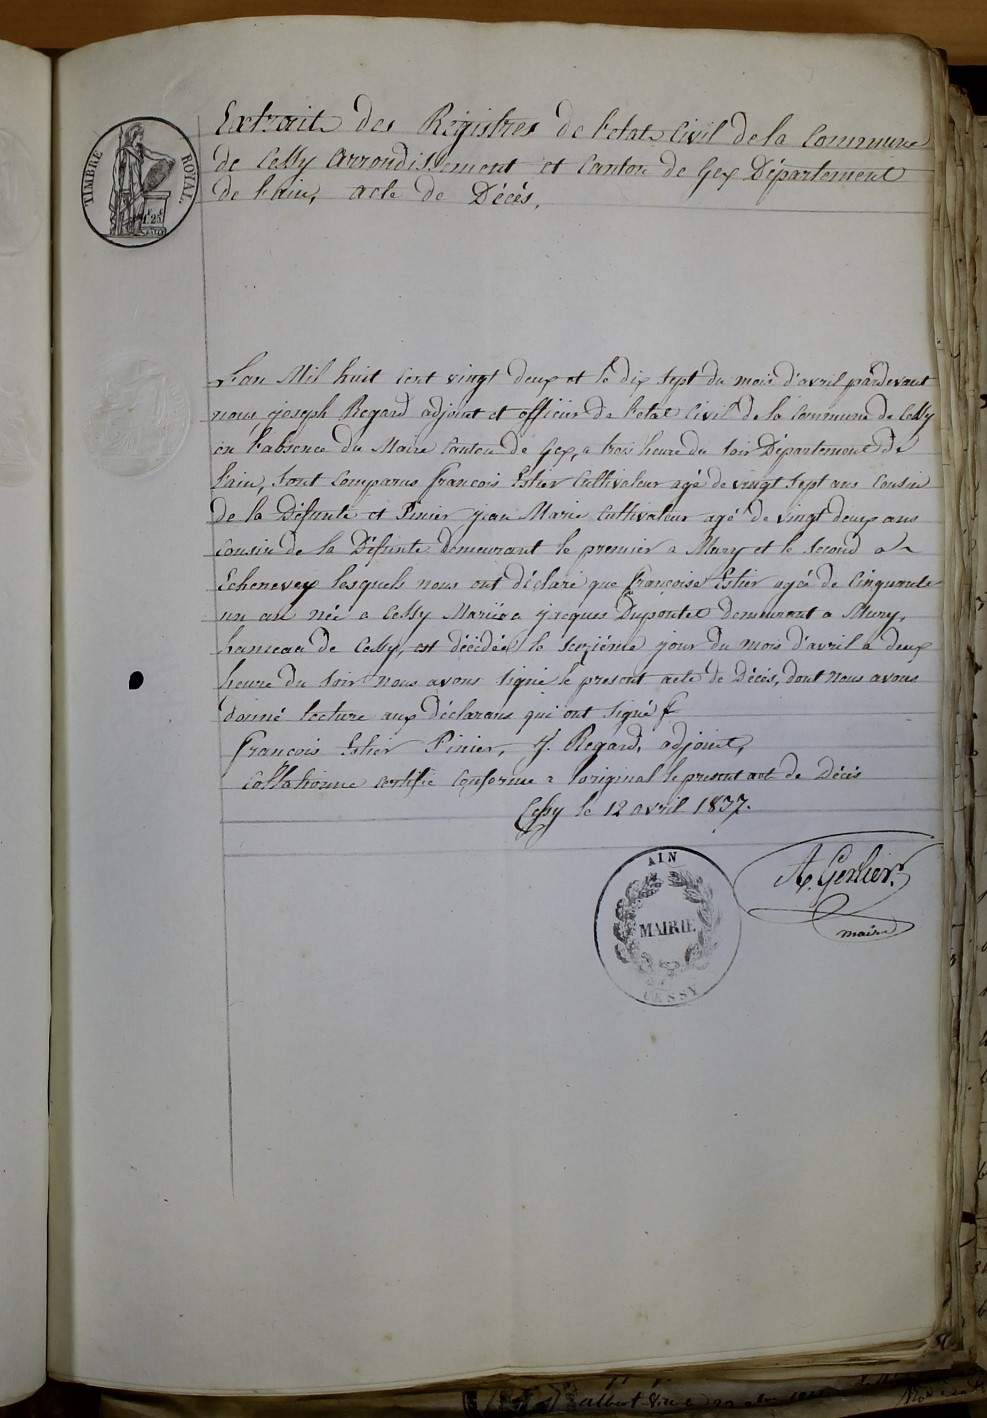 TIMBRE ROYAL
1f 25c
Extrait des Régistres de l'etat Civil de la Commune
de Cessy Arrondissement et Canton de Gex Département
de l'ain, acte de Décés,
L'an Mil huit cent vingt deux et le dix sept du mois d'avril pardevant
nous, joseph Regard adjoint et officier de l'etat Civil de la Commune de Cessy
en l'absence du Maire Canton de Gex, a trois heure du soir Département de
l'ain, sont comparus francois Estier Cultivateur agé de vingt sept ans Cousin
de la Défunte et Pinier jean Marie Cultivateur agé de vingt deux ans
Cousin de la Défunte demeurant le premier a Mury et le second a
Echenevex lesquels nous ont déclaré que françoise Estier agée de Cinquante
un an née a Cessy Mariée a jacques Dupontet demeurant a Mury,
hameau de Cessy, est décédée le seiziéme jour du mois d'avril a deux
heure du soir nous avons signé le present acte de Décés, dont nous avons
donné lecture aux déclarans qui ont signé
francois Estier Pinier, J. Regard, adjoint,
Collationné certifié conforme a l'original le present act de Décés
Cessy le 12 avril 1837.
A. Gerlier.
maire
AIN
MAIRIE
CESSY